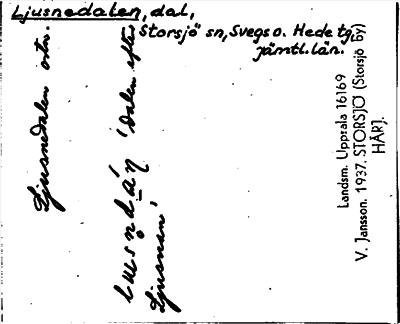 Ljusnedalen, dal,
Storsjö sn, Svegs o. Hede tg,
jämtl. län.
Ljusnedalen ortn.
'dalen efter
Ljusnan'
Landsm. Uppsala 16169
V. Jansson. 1937. STORSJÖ (Storsjö by)
HÄRJ.